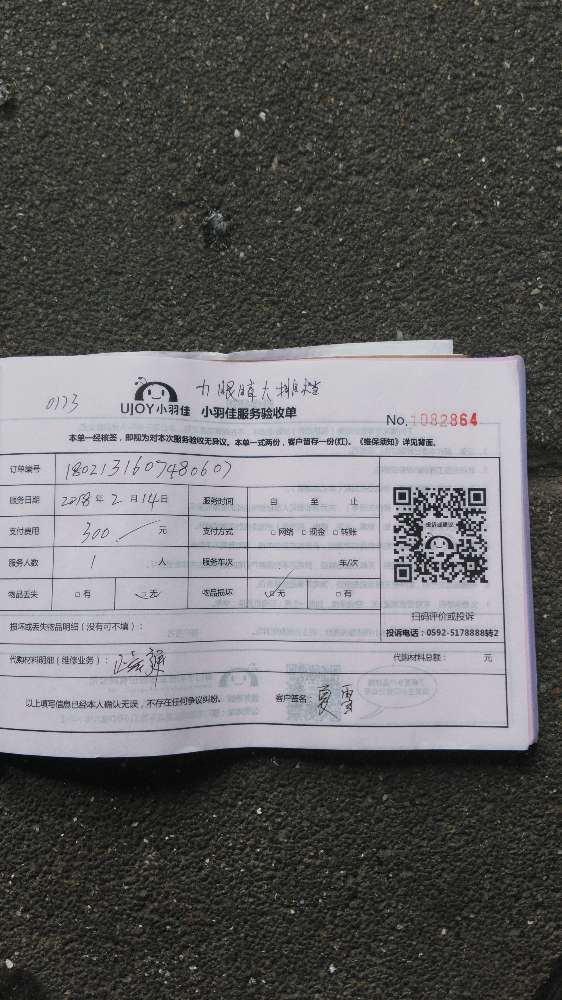 0173
UJOY小羽佳 小羽佳服务验收单
No.1082864
本单一经核签，即视为对本次服务验收无异议。本单一式两份，客户留存一份(红)。《维保须知》详见背面。
订单编号 1802131607480607
服务日期 2018年 2 月 14日 服务时间 自 至 止
支付费用 300 元 支付方式 □网络 □现金 □转账
服务人数 1 人 服务车次 车/次
物品丢失 □有 □无 物品损坏 □无 □有
投诉或建议
扫码评价或投诉
投诉电话：0592-5178888转2
损坏或丢失物品明细（没有可不填）：
代购材料明细（维修业务）： 代购材料总额： 元
以上填写信息已经本人确认无误，不存在任何争议纠纷。 客户签名：夏雪